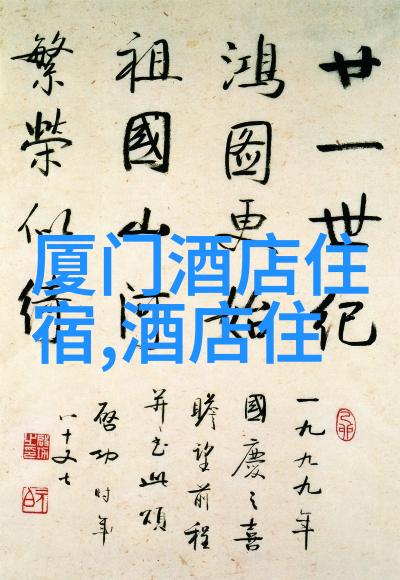 厦门酒店住
宿,酒店住
廿一世纪
鸿图更始
祖國山河
繁榮似
一九九九年
國慶之喜
瞻望前程
并书此頌
啓功时年
八十又七